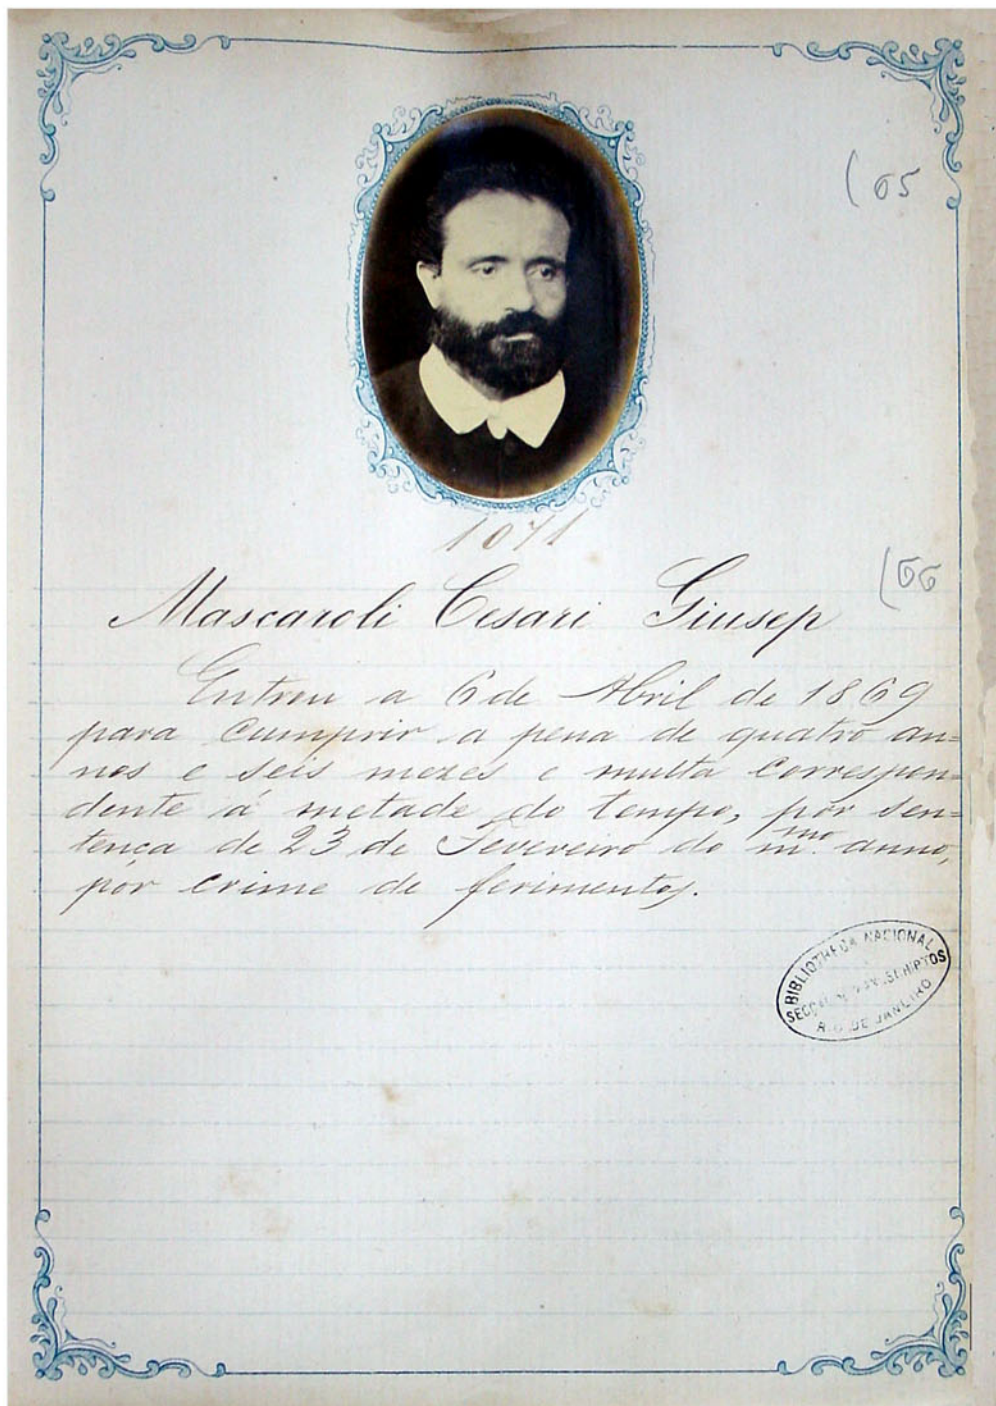 (65
1071
(66
Mascaroli Cesari Giusep
Entrou a 6 de Abril de 1869
para cumprir a pena de quatro an=
nos e seis mezes e multa correspon=
dente á metade do tempo, por sen=
tença de 23 de Fevereiro do m.mo anno,
por crime de ferimentos.
BIBLIOTHECA NACIONAL
SECÇÃO MANUSCRIPTOS
RIO DE JANEIRO